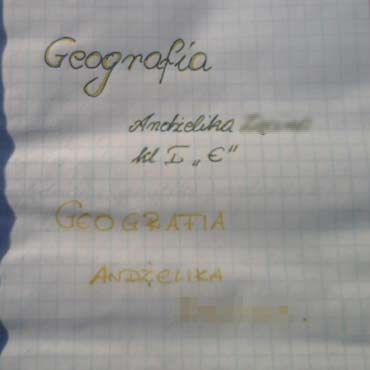 Geografia
Andżelika
kl I „E”
GEOGRAFIA
ANDŻELIKA